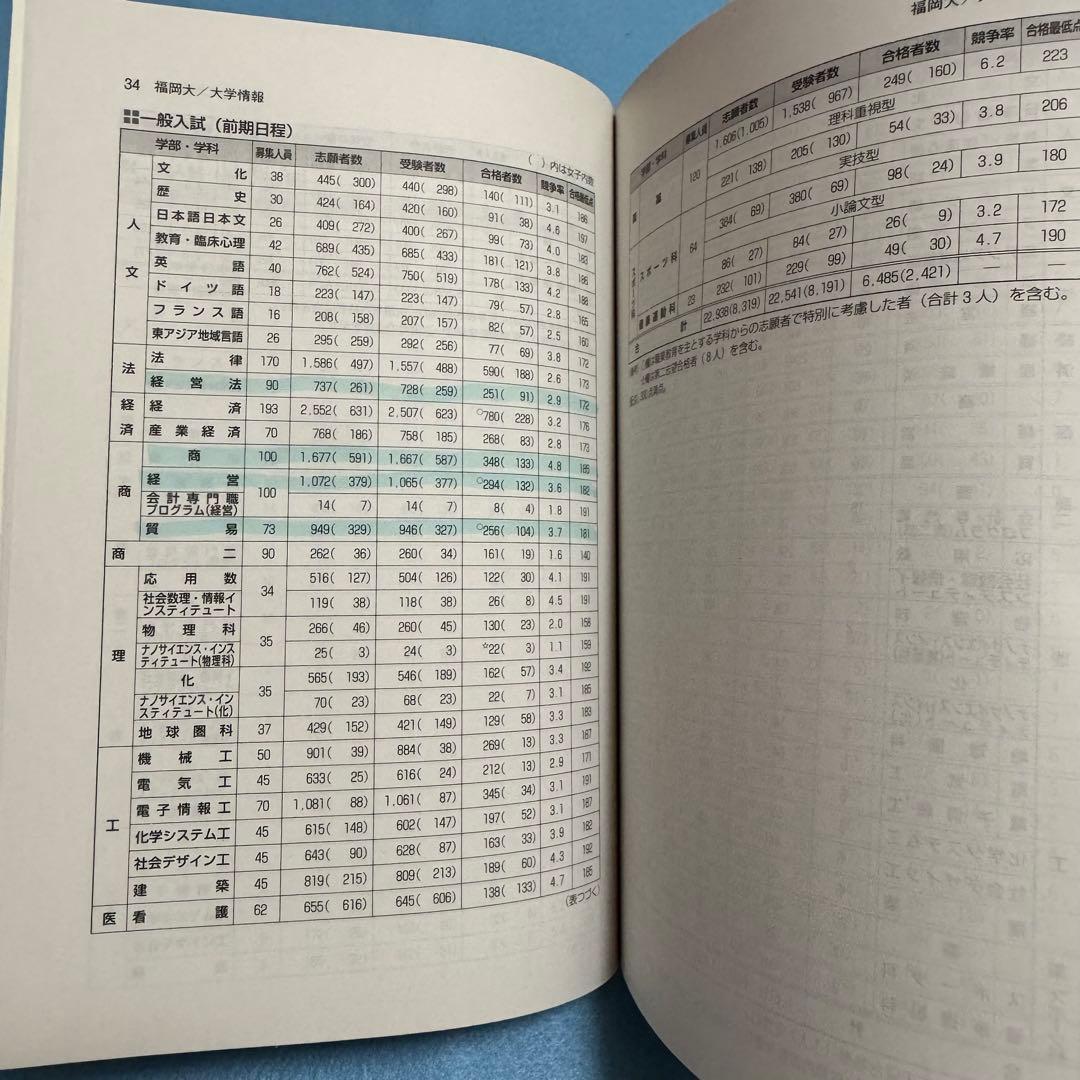 34 福岡大/大学情報
一般入試（前期日程）
（ ）内は女子内数
学部・学科 募集人員 志願者数 受験者数 合格者数 競争率 合格最低点
人文 文化 38 445( 300) 440( 298) 140( 111) 3.1 186
歴史 30 424( 164) 420( 160) 91( 38) 4.6 197
日本語日本文 26 409( 272) 400( 267) 99( 73) 4.0 183
教育・臨床心理 42 689( 435) 685( 433) 181( 121) 3.8 186
英語 40 762( 524) 750( 519) 178( 133) 4.2 188
ドイツ語 18 223( 147) 223( 147) 79( 57) 2.8 165
フランス語 16 208( 158) 207( 157) 82( 57) 2.5 160
東アジア地域言語 26 295( 259) 292( 256) 77( 69) 3.8 172
法 法律 170 1,586( 497) 1,557( 488) 590( 188) 2.6 173
経営法 90 737( 261) 728( 259) 251( 91) 2.9 172
経済 経済 193 2,552( 631) 2,507( 623) °780( 228) 3.2 176
産業経済 70 768( 186) 758( 185) 268( 83) 2.8 173
商 商 100 1,677( 591) 1,667( 587) 348( 133) 4.8
経営 100 1,072( 379) 1,065( 377) °294( 132) 3.6 182
会計専門職プログラム(経営) 14( 7) 14( 7) 8( 4) 1.8 191
貿易 73 949( 329) 946( 327) °256( 104) 3.7 181
商二 90 262( 36) 260( 34) 161( 19) 1.6 140
理 応用数 34 516( 127) 504( 126) 122( 30) 4.1 191
社会数理・情報インスティテュート 119( 38) 118( 38) 26( 8) 4.5 191
物理科 35 266( 46) 260( 45) 130( 23) 2.0 158
ナノサイエンス・インスティテュート(物理科) 25( 3) 24( 3) ☆22( 3) 1.1 159
化 35 565( 193) 546( 189) 162( 57) 3.4 192
ナノサイエンス・インスティテュート(化) 70( 23) 68( 23) 22( 7) 3.1 185
地球圏科 37 429( 152) 421( 149) 129( 58) 3.3 183
工 機械工 50 901( 39) 884( 38) 269( 13) 3.3 187
電気工 45 633( 25) 616( 24) 212( 13) 2.9 171
電子情報工 70 1,081( 88) 1,061( 87) 345( 34) 3.1 191
化学システム工 45 615( 148) 602( 147) 197( 52) 3.1 187
社会デザイン工 45 643( 90) 628( 87) 163( 33) 3.9 182
建築 45 819( 215) 809( 213) 189( 60) 4.3 192
医 看護 62 655( 616) 645( 606) 138( 133) 4.7 185
（表つづく）
福岡大/
学部・学科 募集人員 志願者数 受験者数 合格者数 競争率 合格最低点
120 1,606(1,005) 1,538( 967) 249( 160) 6.2 223
理科重視型
221( 138) 205( 130) 54( 33) 3.8 206
実技型
スポーツ科 64 384( 69) 380( 69) 98( 24) 3.9 180
小論文型
86( 27) 84( 27) 26( 9) 3.2 172
健康運動科 23 232( 101) 229( 99) 49( 30) 4.7 190
合計 22,938(8,319) 22,541(8,191) 6,485(2,421) — —
欄は職業教育を主とする学科からの志願者で特別に考慮した者（合計3人）を含む。
☆欄は第二志望合格者（8人）を含む。